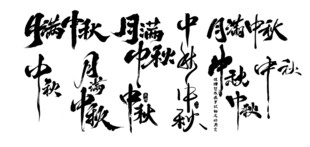 月满中秋
中秋
月满
中秋
月满
中秋
中秋
中秋
中秋
月满中秋
中秋
中秋
中秋